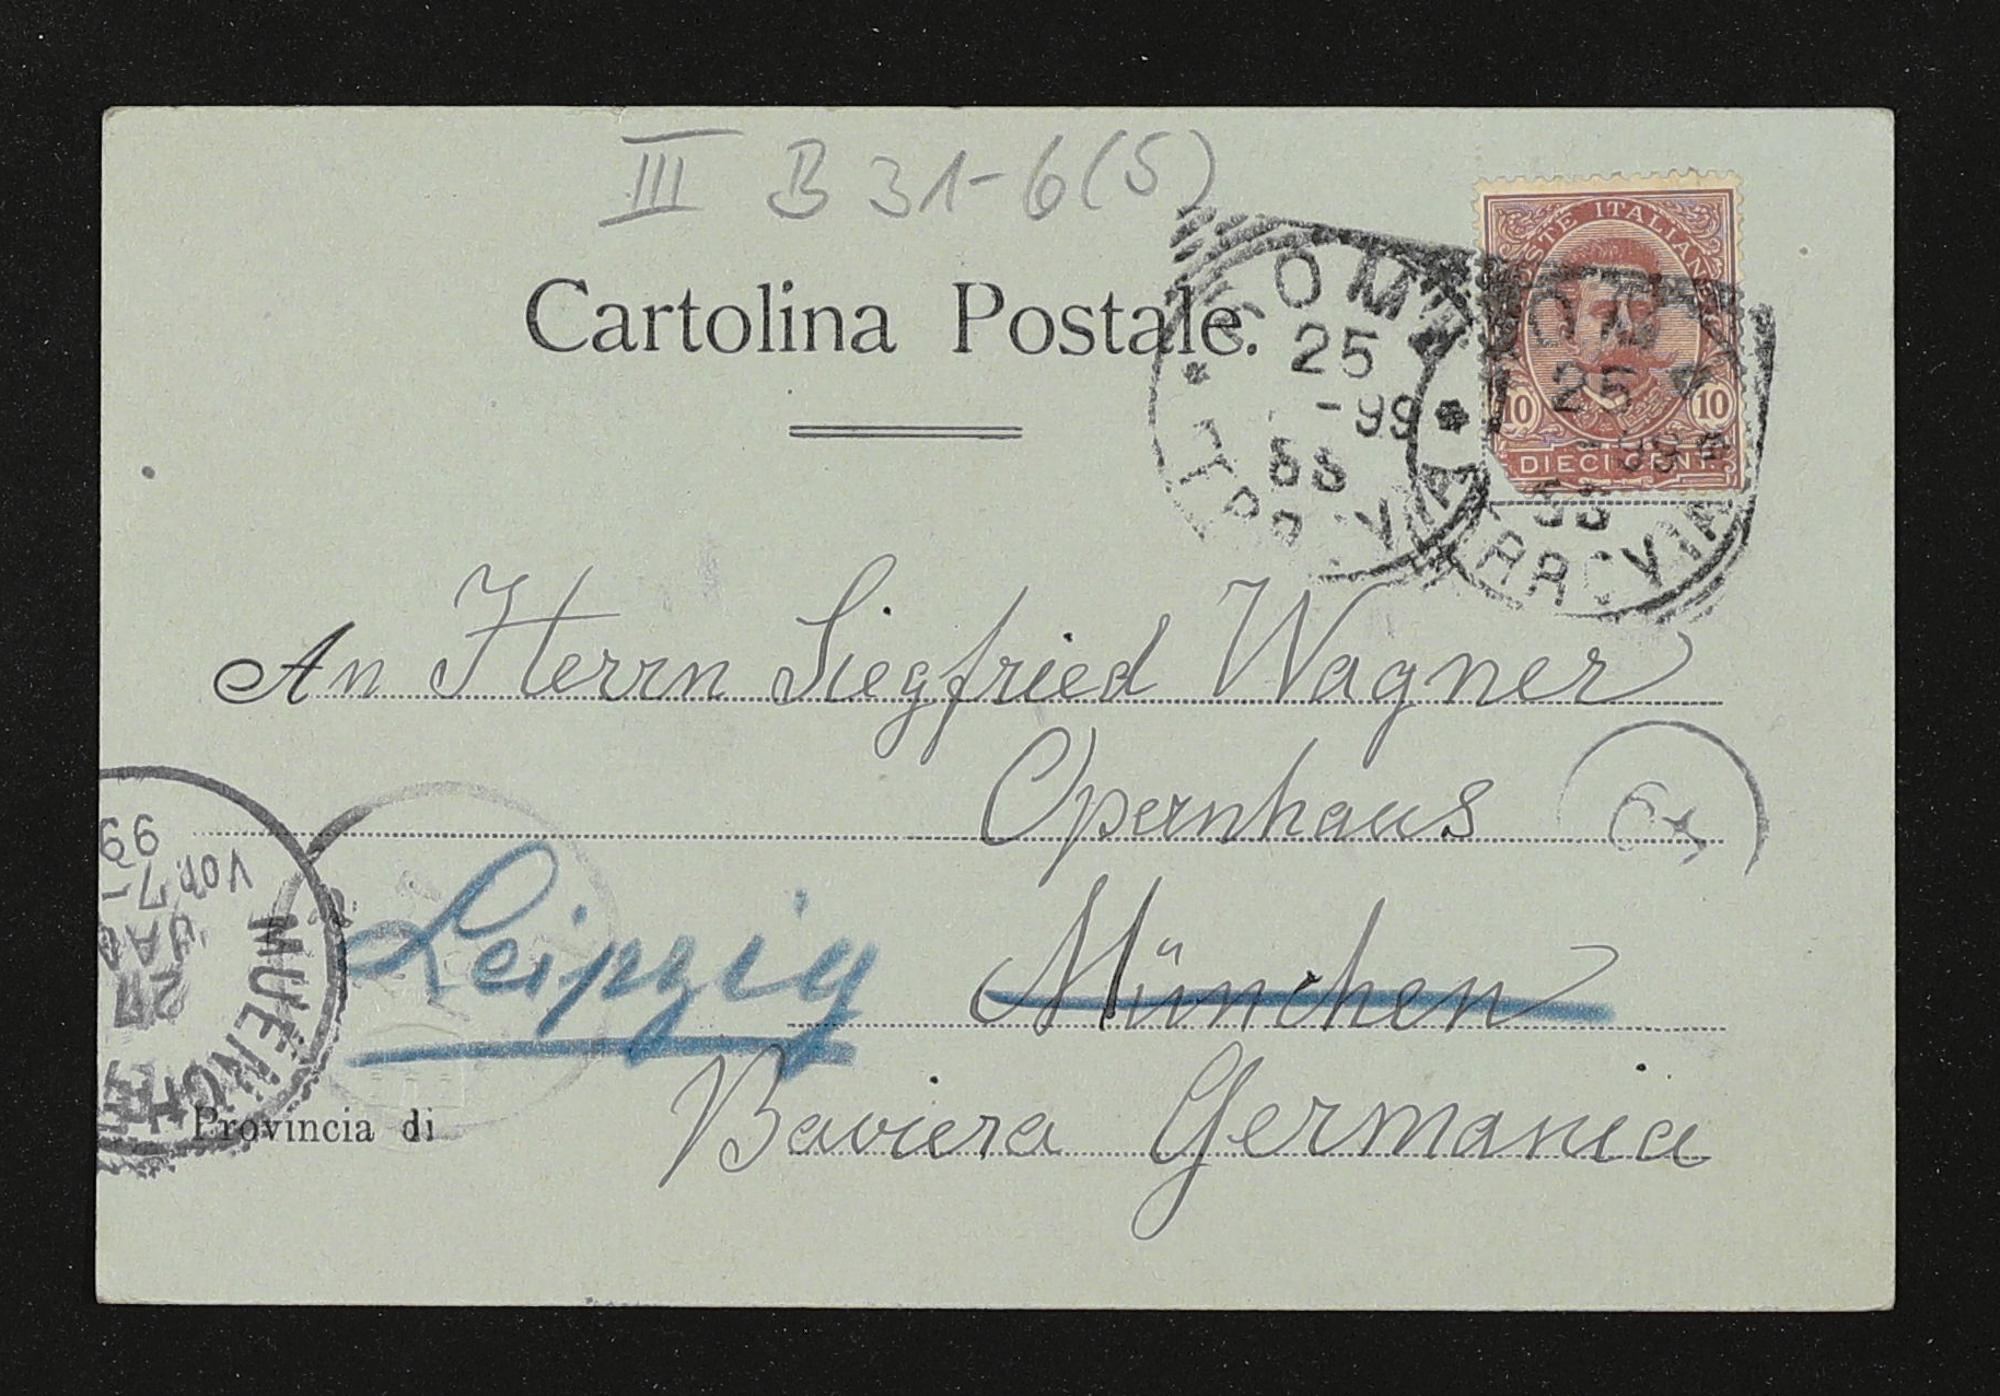 III B 31-6(5)
Cartolina Postale.
POSTE ITALIANE
10 10
DIECI CENT.
ROMA
25
-99
FERROVIA
ROMA
25
FERROVIA
An Herrn Siegfried Wagner
Opernhaus
Leipzig München
Baviera Germania
Provincia di
MUENCHEN
27
JAN
VOR. 7-
99